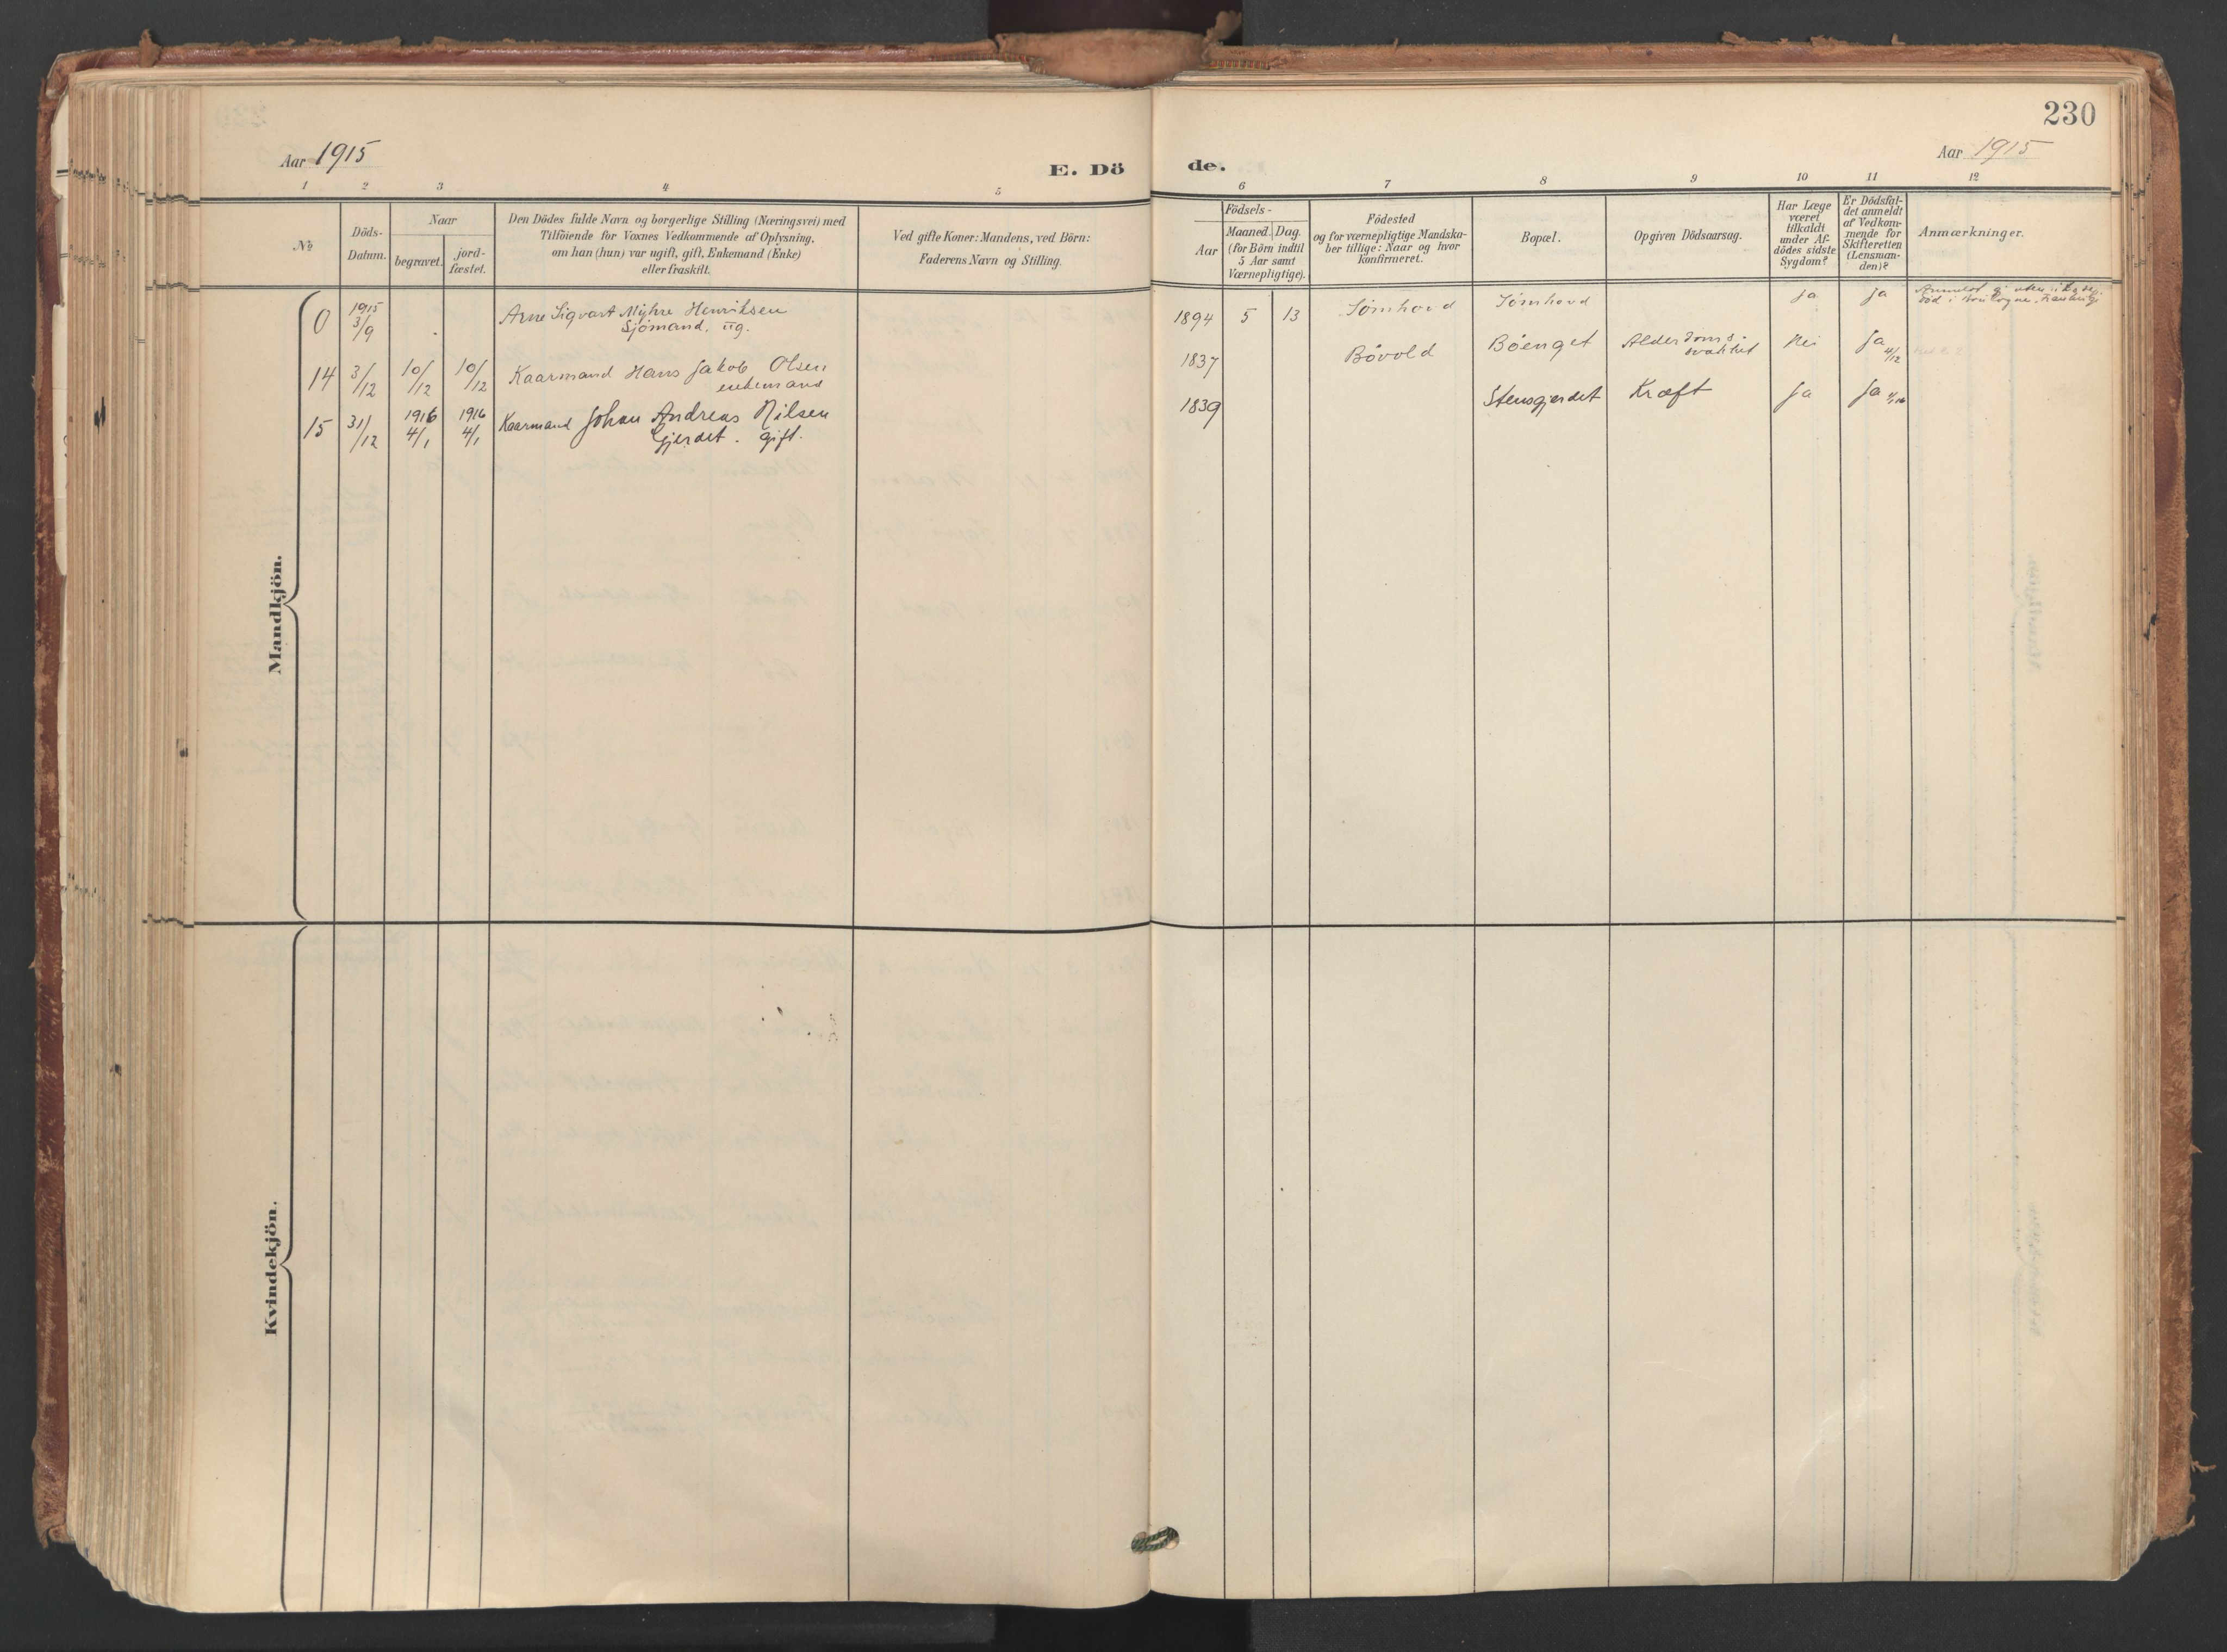 230
Aar 1915
E. Dö
de.
Aar 1915
1 2 3 4 5 6 7 8 9 10 11 12
No
Döds-
Datum.
Naar
begravet.
jord-
fæstet.
Den Dödes fulde Navn og borgerlige Stilling (Næringsvei) med
Tilföiende for Voxnes Vedkommende af Oplysning,
om han (hun) var ugift, gift, Enkemand (Enke)
eller fraskilt.
Ved gifte Koner: Mandens, ved Börn:
Faderens Navn og Stilling.
Födsels-
Aar
Maaned.
Dag.
(for Börn indtil
5 Aar samt
Værnepligtige).
Födested
og for værnepligtige Mandska-
ber tillige: Naar og hvor
konfirmeret.
Bopæl.
Opgiven Dödsaarsag.
Har Læge
været
tilkaldt
under Af-
dödes sidste
Sygdom?
Er Dödsfal-
det anmeldt
af Vedkom-
mende for
Skifteretten
(Lensman-
den)?
Anmærkninger.
Mandkjön.
0 1915 3/9 Arne Sigvart Myhre Henriksen 1894 5 13 Sömhovd Sömhovd Ja Ja
Sjömand, ug.
14 3/12 10/12 10/12 Kaarmand Hans Jakob Olsen 1837 Bövold Böenget Alderdoms- Nei Ja 4/12
enkemand
15 31/12 1916 4/1 1916 4/1 Kaarmand Johan Andreas Nilsen 1839 Stensgjerdet Kræft Ja Ja
Gjerdet. gift.
Kvindekjön.